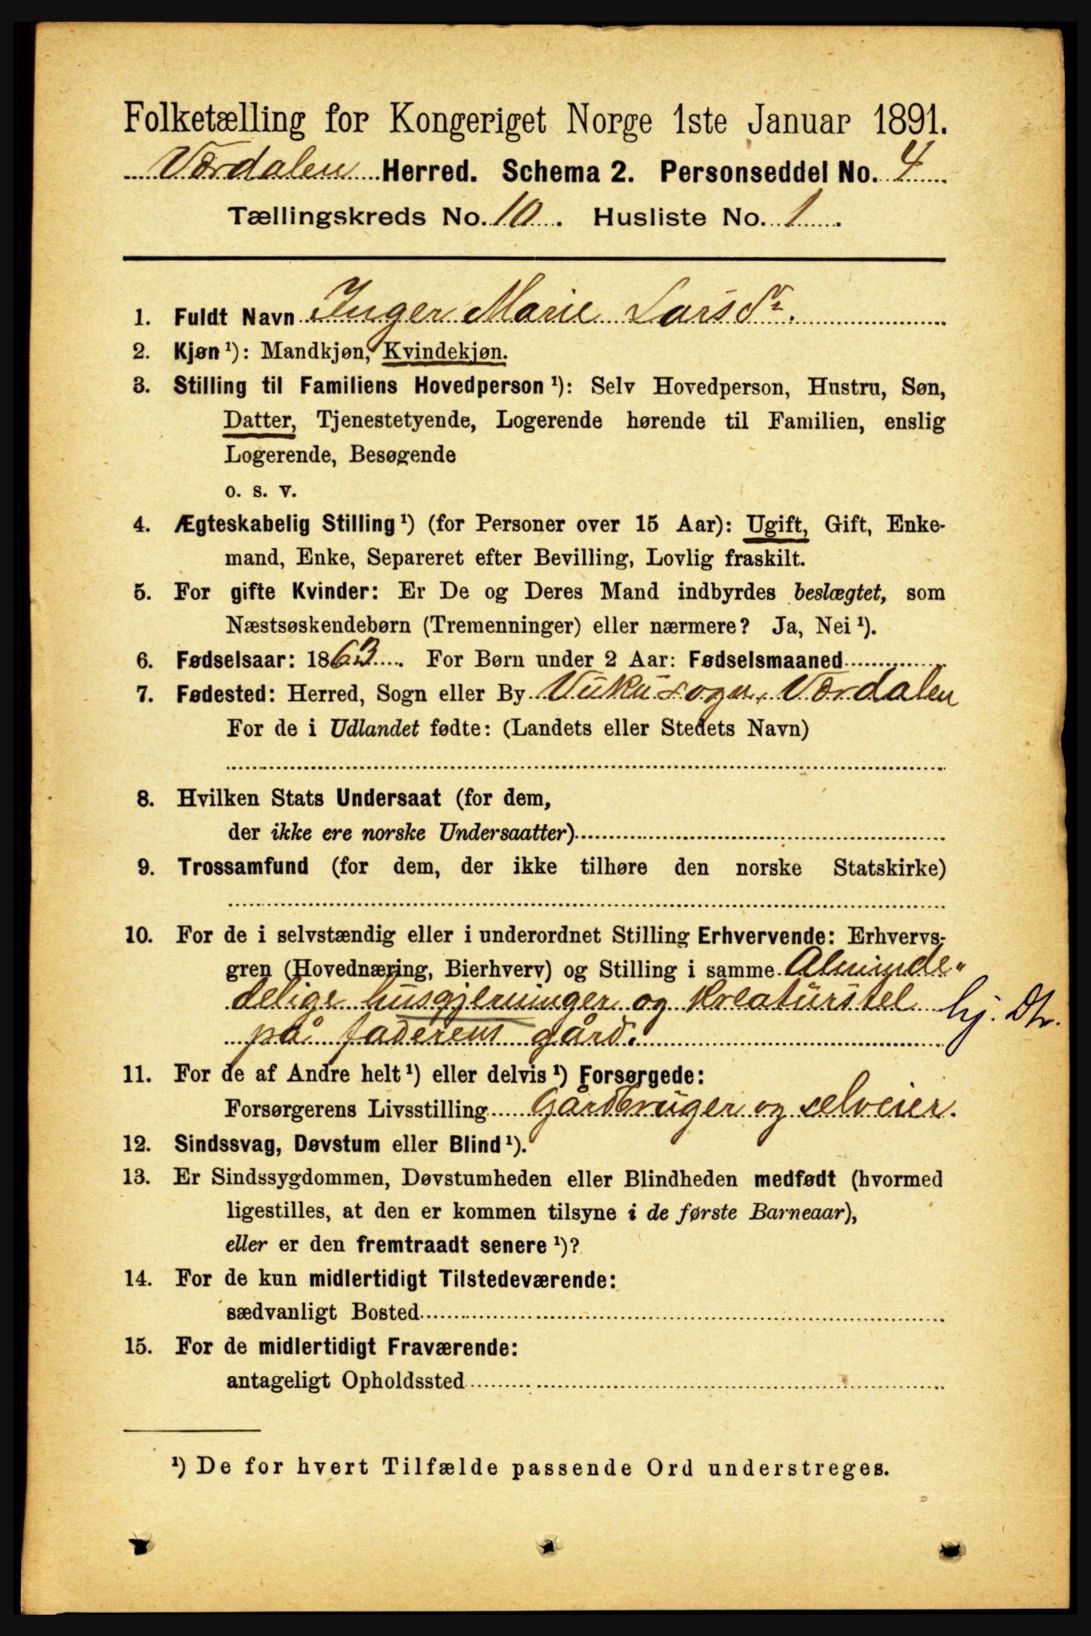 Folketælling for Kongeriget Norge 1ste Januar 1891.
Værdalen Herred. Schema 2. Personseddel No. 4
Tællingskreds No. 10. Husliste No. 1.
1. Fuldt Navn Inger Marie Larsdr.
2. Kjøn ¹): Mandkjøn, Kvindekjøn.
3. Stilling til Familiens Hovedperson ¹): Selv Hovedperson, Hustru, Søn,
Datter, Tjenestetyende, Logerende hørende til Familien, enslig
Logerende, Besøgende
o. s. v.
4. Ægteskabelig Stilling ¹) (for Personer over 15 Aar): Ugift, Gift, Enke-
mand, Enke, Separeret efter Bevilling, Lovlig fraskilt.
5. For gifte Kvinder: Er De og Deres Mand indbyrdes beslægtet, som
Næstsøskendebørn (Tremenninger) eller nærmere? Ja, Nei ¹).
6. Fødselsaar: 1863. For Børn under 2 Aar: Fødselsmaaned
7. Fødested: Herred, Sogn eller By Vuku sogn, Værdalen
For de i Udlandet fødte: (Landets eller Stedets Navn)
8. Hvilken Stats Undersaat (for dem,
der ikke ere norske Undersaatter)
9. Trossamfund (for dem, der ikke tilhøre den norske Statskirke)
10. For de i selvstændig eller i underordnet Stilling Erhvervende: Erhvervs-
gren (Hovednæring, Bierhverv) og Stilling i samme Alminde-
delige husgjerninger og kreaturstel hj. Dtr.
på faderens gård.
11. For de af Andre helt ¹) eller delvis ¹) Forsørgede:
Forsørgerens Livsstilling Gårdbruger og selveier.
12. Sindssvag, Døvstum eller Blind ¹).
13. Er Sindssygdommen, Døvstumheden eller Blindheden medfødt (hvormed
ligestilles, at den er kommen tilsyne i de første Barneaar),
eller er den fremtraadt senere ¹)?
14. For de kun midlertidigt Tilstedeværende:
sædvanligt Bosted
15. For de midlertidigt Fraværende:
antageligt Opholdssted
¹) De for hvert Tilfælde passende Ord understreges.